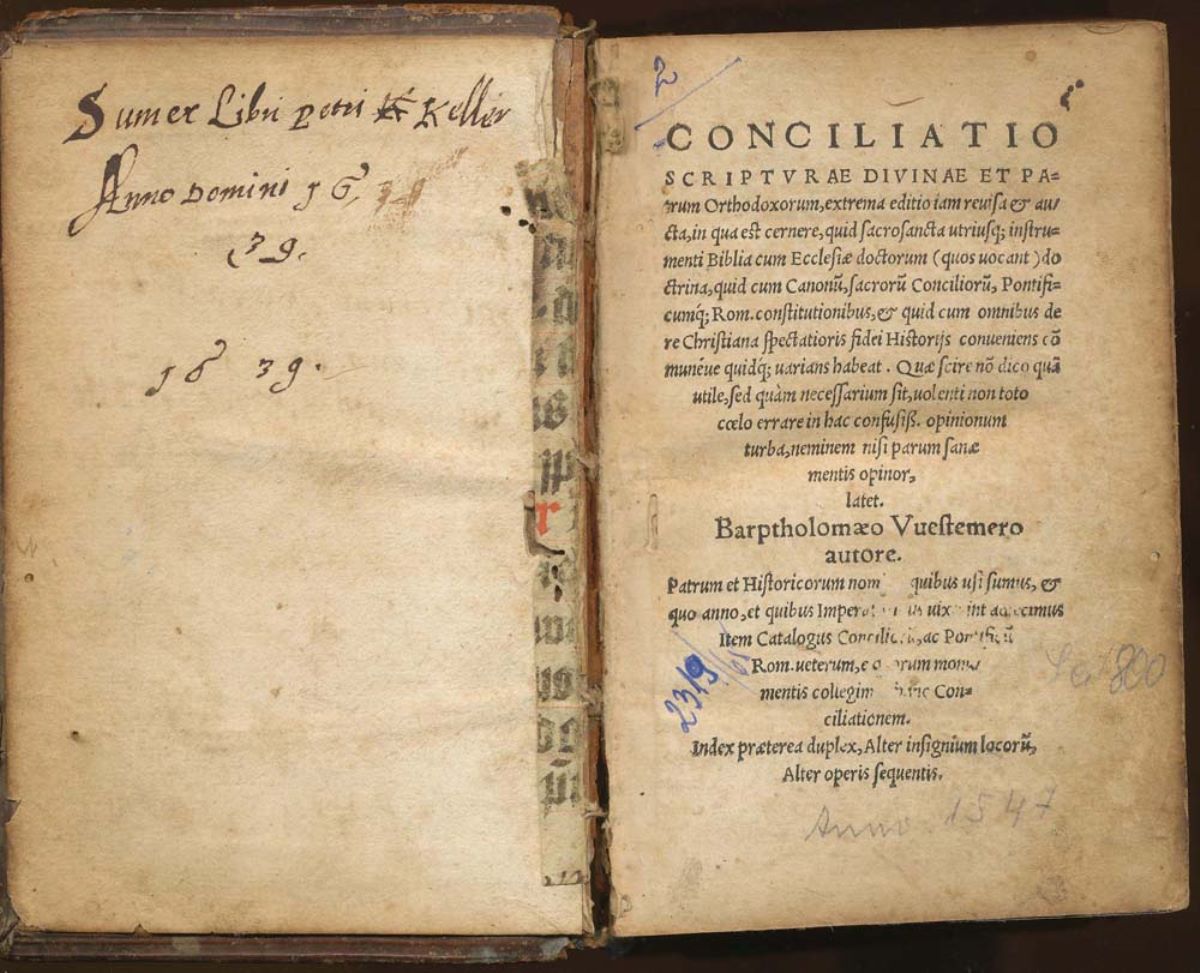 Sum ex Libri petri K Keller
Anno Domini 16,
39.
1639.
2
CONCILIATIO
SCRIPTVRAE DIVINAE ET PA=
trum Orthodoxorum, extrema editio iam reuisa & au/
cta, in qua est cernere, quid sacrosancta utriusq; instru=
menti Biblia cum Ecclesiæ doctorum (quos uocant) do
ctrina, quid cum Canonũ, sacrorũ Conciliorũ, Pontifi=
cumq́; Rom. constitutionibus, & quid cum omnibus de
re Christiana spectatioris fidei Historijs conueniens cõ
munéue quidq́; uarians habeat. Quæ scire nõ dico quã
utile, sed quàm necessarium sit, uolenti non toto
cœlo errare in hac confusiß. opinionum
turba, neminem nisi parum sanæ
mentis opinor,
latet.
Barptholomæo Vuestemero
autore.
Patrum et Historicorum nom quibus usi sumus, &
quo anno, et quibus
Item Catalogus ac
Rom. ueterum,
mentis collegim Con=
ciliationem.
Index præterea duplex, Alter insignium locorũ,
Alter operis sequentis.
2319/61
800
Anno 1547